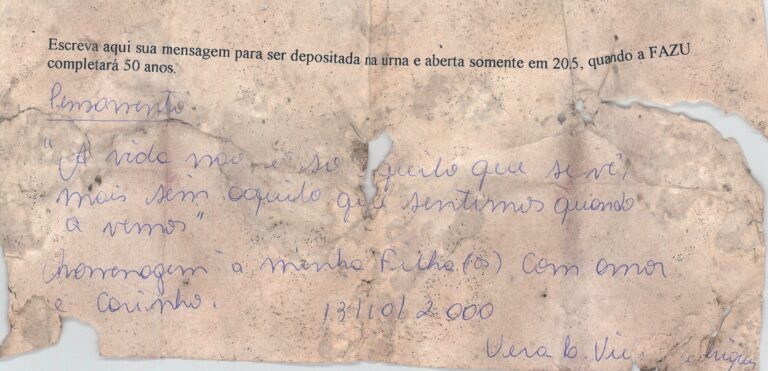 Escreva aqui sua mensagem para ser depositada na urna e aberta somente em 20,5, quando a FAZU
completará 50 anos.
Pensamento
"A vida não é só aquilo que se vê,
mais sim aquilo que sentimos quando
a vemos"
Homenagem a minha Filha(os) com amor
e Carinho.
13/10/2000
Vera